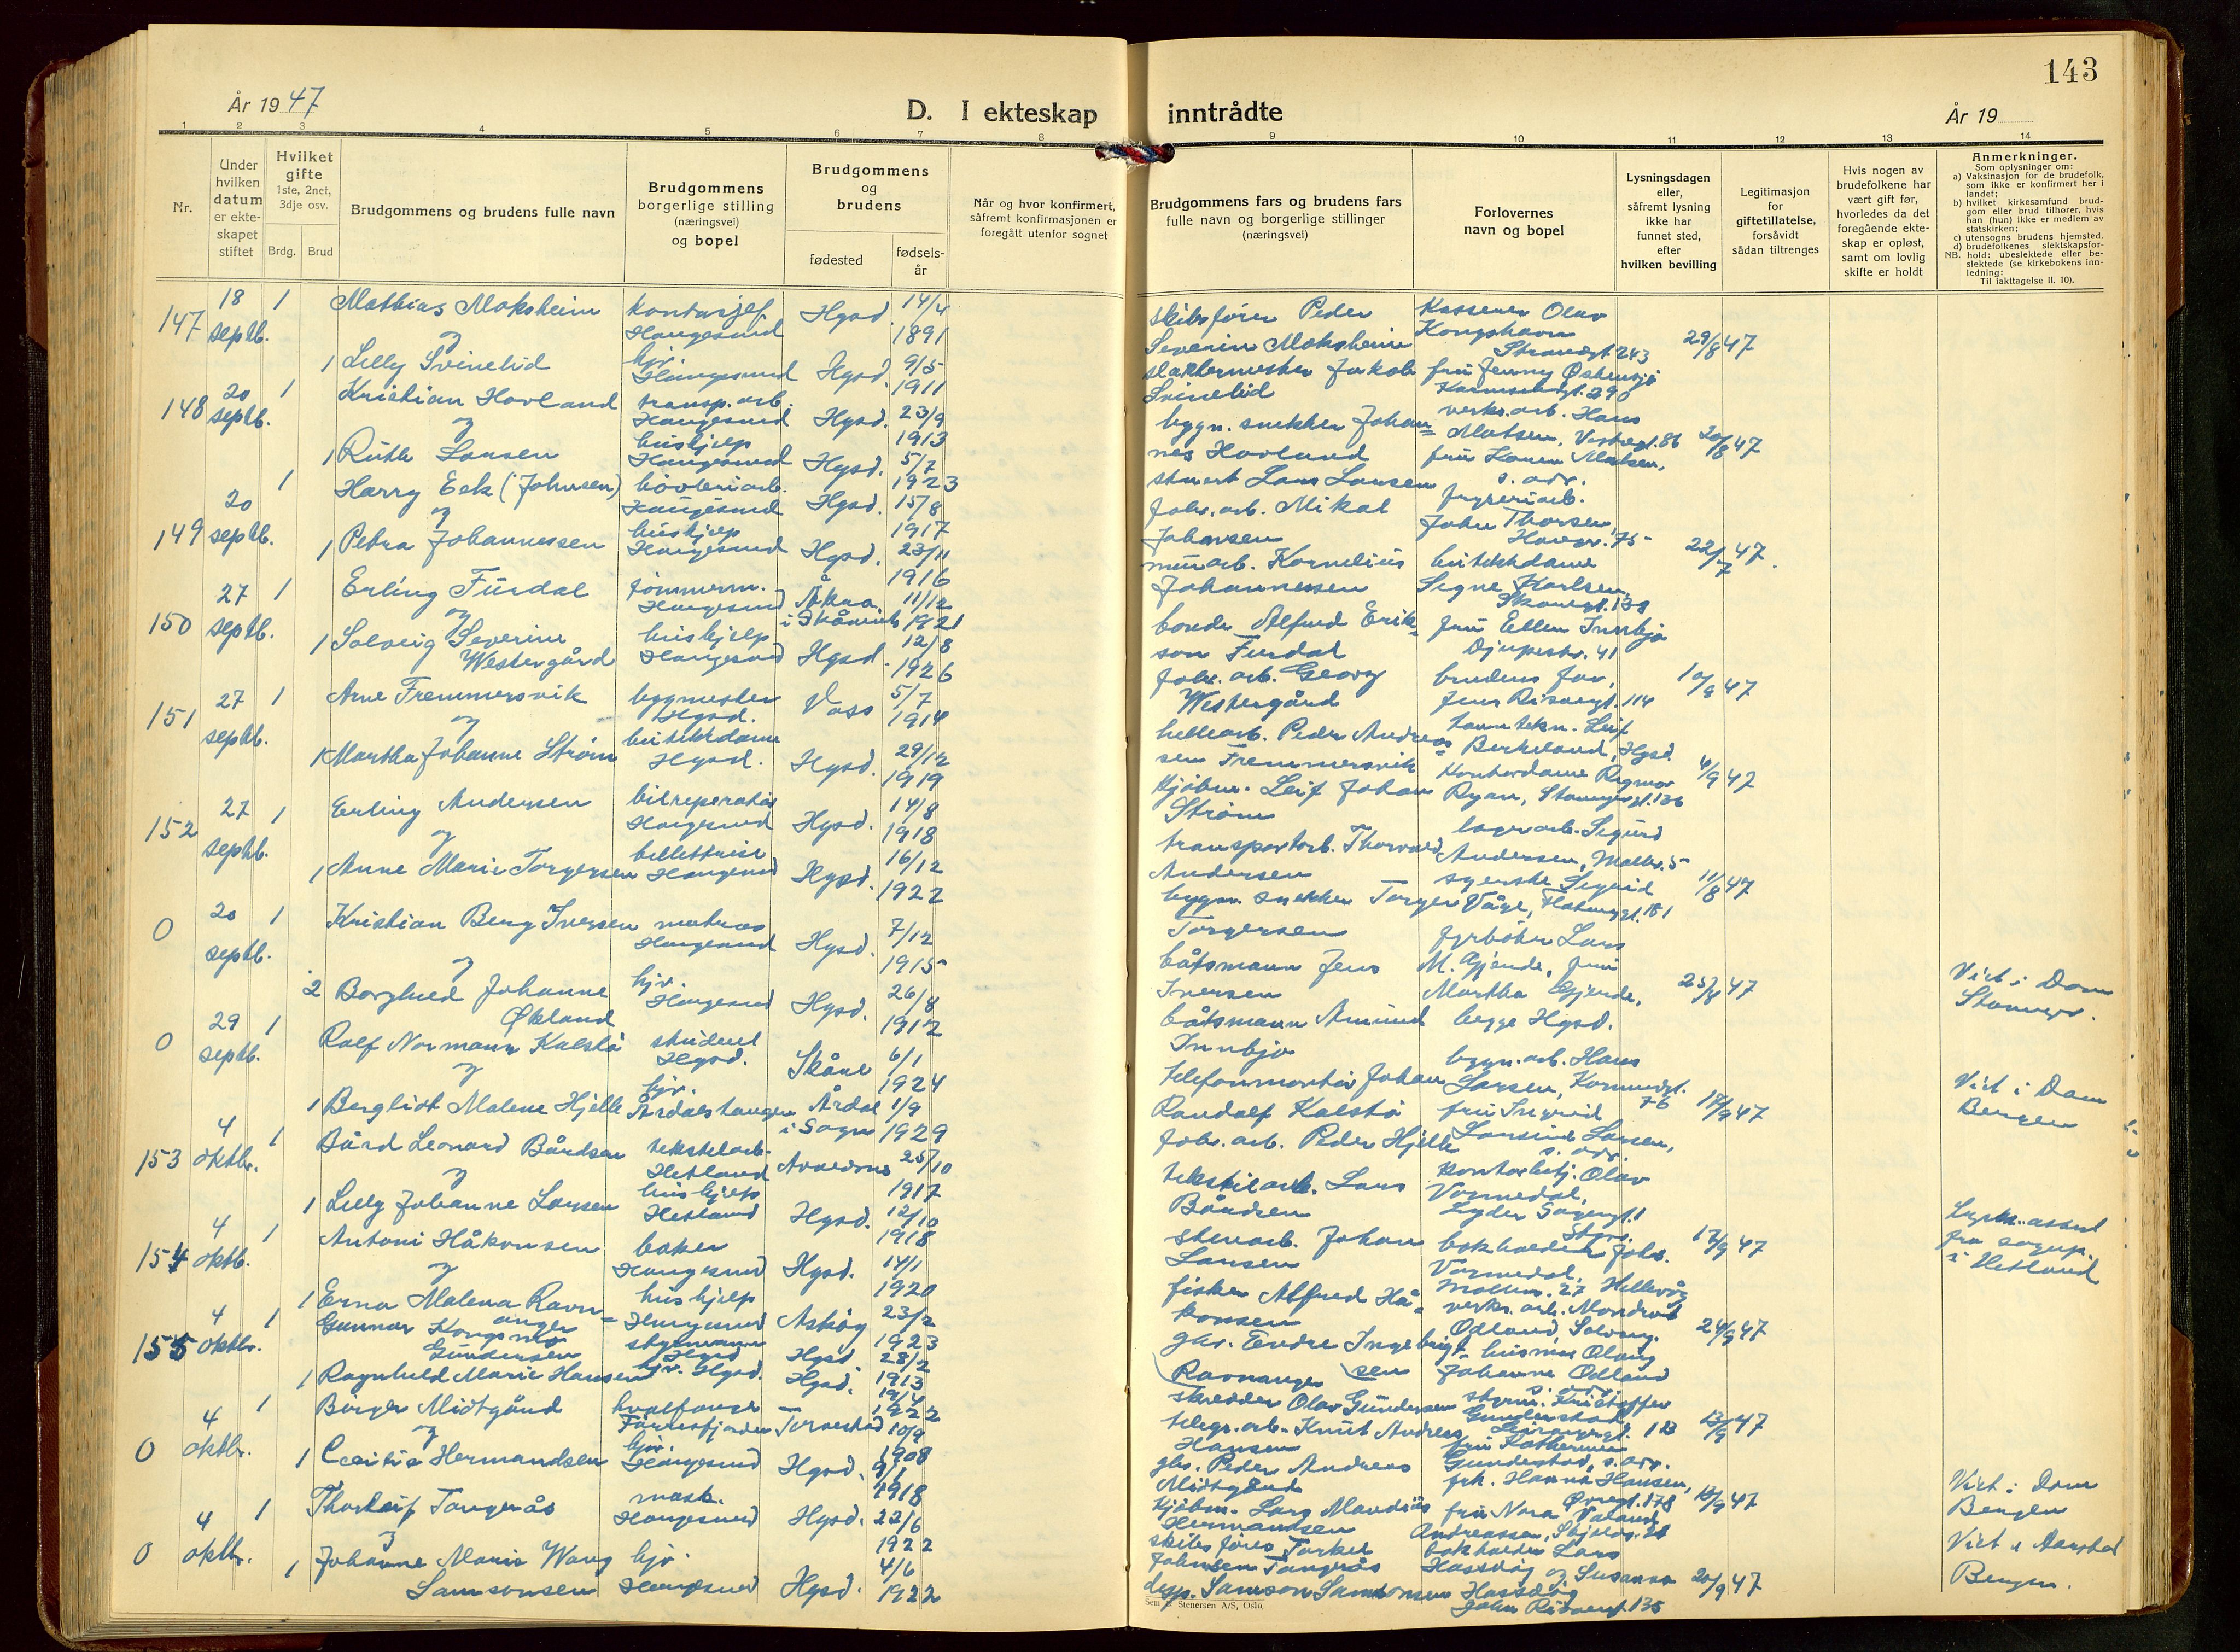 År 1947
D. I ekteskap
1 2 3 4 5 6 7 8
Nr.
Under hvilken datum er ekte-skapet stiftet
Hvilket gifte 1ste, 2net, 3dje osv.
Brdg. Brud
Brudgommens og brudens fulle navn
Brudgommens borgerlige stilling (næringsvei) og bopel
Brudgommens og brudens
fødested
fødsels-år
Når og hvor konfirmert, såfremt konfirmasjonen er foregått utenfor sognet
147 18 septb. 1 Mathias Moksheim kontorsjef Haugesund Hgsd. 14/4 1891
og
1 Lilly Svinelid hjv. Haugesund Hgsd. 9/5 1911
148 20 septb. 1 Kristian Hovland transp. arb. Haugesund Hgsd. 23/9 1913
og
1 Ruth Larsen hushjelp Haugesund Hgsd. 5/7 1923
149 20 septb. 1 Harry Eek (Johnsen) Haugesund Hgsd. 15/8 1917
og
1 Petra Johannessen hushjelp Haugesund Hgsd. 23/11 1916
150 27 septb. 1 Erling Furdal tømmerm. Haugesund Åkra i Skånevik 11/12 1921
og
1 Solveig Severine Westergård hushjelp Haugesund Hgsd. 12/8 1926
151 27 septb. 1 Arne Fremmersvik byggmester Hgsd. Voss 5/7 1914
og
1 Martha Johanne Strøm butikkdame Hgsd. Hgsd. 29/12 1919
152 27 septb. 1 Erling Andersen bilreparatør Haugesund Hgsd. 14/8 1918
og
1 Anne Marie Torgersen billettrise Haugesund Hgsd. 16/12 1922
0 20 septb. 1 Kristian Berg Iversen matros Haugesund Hgsd. 7/12 1915
og
2 Borghild Johanne Økland hjv. Haugesund Hgsd. 26/8 1912
0 29 septb. 1 Ralf Normann Kalstø student Hgsd. Skåne 6/1 1924
og
1 Bergliot Malene Hjelle hjv. Årdalstangen Årdal i Sogn 1/9 1929
153 4 oktbr. 1 Bård Leonard Bårdsen tekstilarb. Hetland Avaldsnes 25/10 1917
og
1 Lilly Johanne Larsen hushjelp Hetland Hgsd. 12/10 1918
154 4 oktb. 1 Antoni Håkonsen baker Haugesund Hgsd. 14/1 1920
og
1 Erna Malena Ravnanger hushjelp Haugesund Askøy 23/2 1923
155 4 oktbr. 1 Gunnar Kongsmo Gundersen styrmann Hgsd Hgsd 28/2 1913
1 Ragnhild Marie Hansen hjv. Hgsd. Hgsd. 19/4 1922
0 4 oktbr. 1 Birger Midtgård hvalfanger Førdesfjorden Torvestad 10/9 1908
og
1 Cecilie Hermandsen hjv. Haugesund Hgsd. 9/1 1918
0 4 oktbr. 1 Thorleif Tangerås mask. Haugesund Hgsd. 22/6 1922
og
1 Johanne Marie Wang Samsonsen hjv. Haugesund Hgsd. 4/6 1922
143
inntrådte
År 19
9 10 11 12 13 14
Brudgommens fars og brudens fars fulle navn og borgerlige stillinger (næringsvei)
Forlovernes navn og bopel
Lysningsdagen eller, såfremt lysning ikke har funnet sted, efter hvilken bevilling
Legitimasjon for giftetillatelse, forsåvidt sådan tiltrenges
Hvis nogen av brudefolkene har vært gift før, hvorledes da det foregående ekte-skap er opløst, samt om lovlig skifte er holdt
Anmerkninger.
Som oplysninger om:
a) Vaksinasjon for de brudefolk, som ikke er konfirmert her i landet;
b) hvilket kirkesamfund brud-gom eller brud tilhører, hvis han (hun) ikke er medlem av statskirken;
c) utensogns brudens hjemsted.
d) brudefolkenes slektskapsfor-
NB. hold: ubeslektede eller be-slektede (se kirkebokens inn-ledning:
Til iakttagelse II. 10).
skibsfører Peder Severin Moksheim
Kasserer Olav Kongshavn Strandgt. 243
29/8 47
slaktermester Jakob Svinelid
fru Jenny Østensjø Karmsundgt. 290
bygn. snekker Johannes Hovland
verks. arb. Hans Madsen,
20/8 47
stuert Lars Larsen
fru Karen Madsen, s. adr.
fabr. arb. Mikal Johansen
John Thorsen,
22/7 47.
murarb. Kornelius Johannessen
butikkdame Signe Karlsen,
bonde Alfred Erikson Furdal
fru Ellen Innbjo Djupestr. 41
fabr. arb. Georg Westergård
brudens far, Jens Risøegt. 114
10/9 47
hellearb. Peder Andreassen Fremmersvik
tanntekn. Leif Birkeland, Hgsd.
4/9 47
kjøbm. Leif Johan Strøm
Kontordame Ragmor
transportarb. Thorvald Andersen
lagerarb. Sigurd Andersen,
11/8 47
bygn. snekker Torger Torgersen
syerske Sigrid Våge,
båtsmann Jens Iversen
fyrbøter Lars M. Gjerde, fru Martha Gjerde, begge Hgsd.
25/8 47
Viet i Dom Stavanger.
båtsmann Amund Innbjo
telefonmontør Johan Randolf Kalstø
bygn. arb. Hans Larsen, Karmsundgt. 76
Viet i Dom Bergen
fabr. arb. Peder Hjelle
fru Ingrid Larsen, s. adr.
tekstilarb. Lars Bårdsen
kontorbetj. Olav Vormedal,
17/9 47
Lysn. attest fra sognep. i Hetland
stenarb. Johan Larsen
bokholder Johs. Vormedal,
fisker Alfred Håkonsen
verks. arb. Mondrad Odland,
24/9 47
gbr. Endre Ingebrigtsen Ravnanger
husmor Olaug Johanne Odland s. adr.
skredder Olav Gundersen
styrm. Kristoffer Gunderstad
13/9 47
telegr. arb. Knut Andreas Hansen
fru Katherine Gunderstad, s. adr.
gbr. Peder Andreas Midtgård
frk. Hanna Hansen, Øvregt. 178
13/9 47
Viet i Dom Bergen
kjøbm. Lars Mandius Hermandsen
fru Nora Valand Andreassen,
skibsfører Torkel Johnsen Tangerås
bokholder Lars Hassdøy og Susanna
20/9 47
Viet i Aarstad Bergen.
desp. Samson Samsonsen
Hassdøy John Risøegt. 135
Sem & Stenersen A/S, Oslo